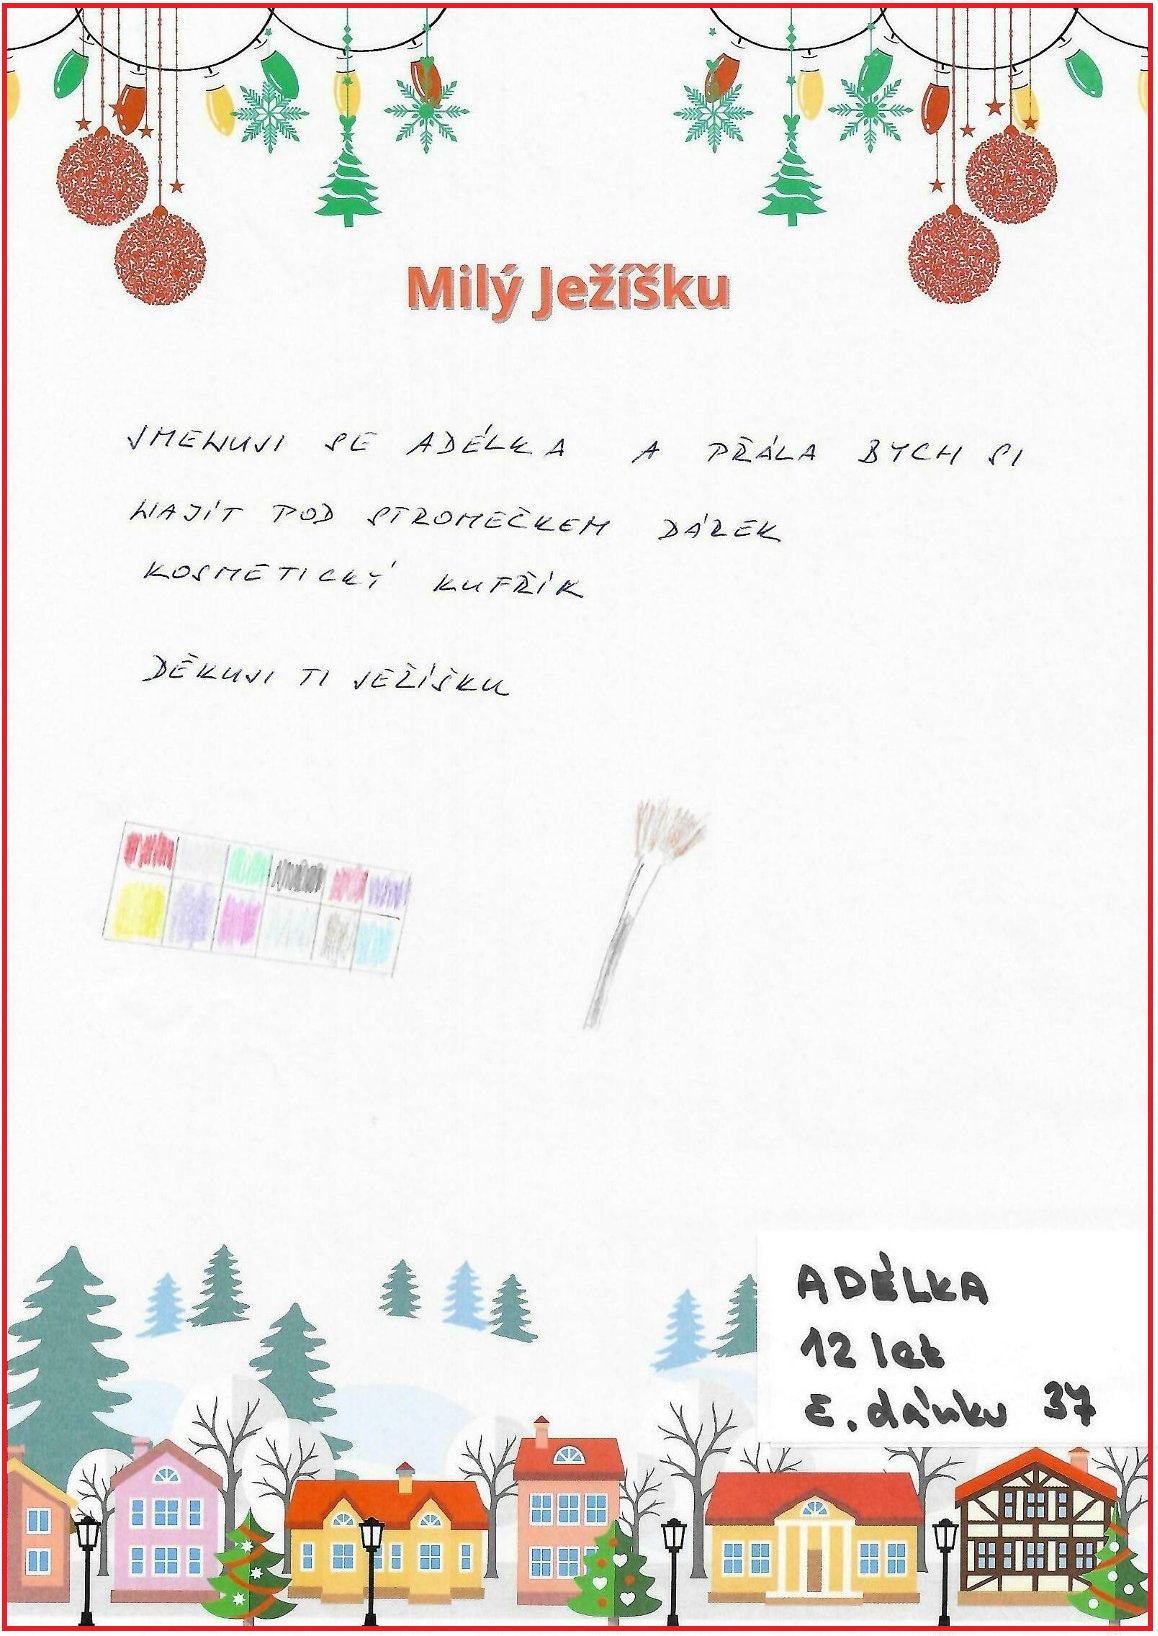 Milý Ježíšku
JMENUJI SE ADÉLKA A PŘÁLA BYCH SI
NAJÍT POD STROMEČKEM DÁREK
KOSMETICKÝ KUFŘÍK
DĚKUJI TI JEŽÍŠKU
ADÉLKA
12 let
č. dárku 37